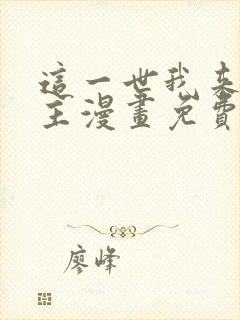 這一世我來
主漫畫免費
廖峰